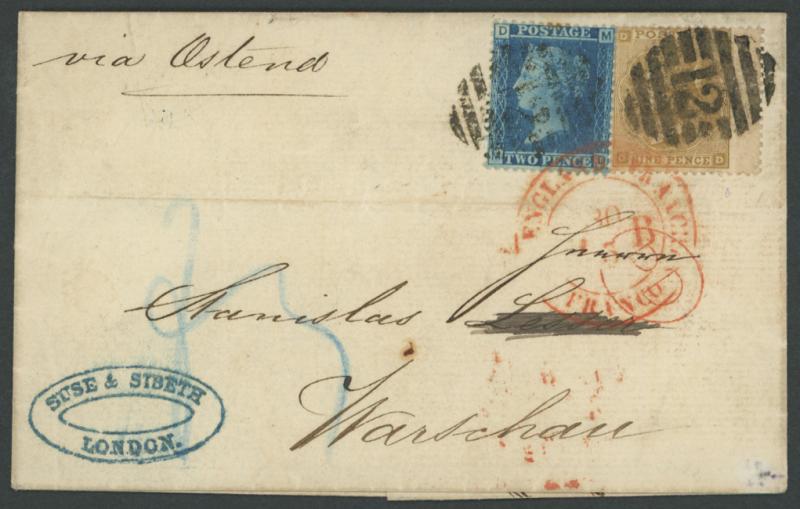 via Ostend
D POSTAGE M
M TWO PENCE D
D POSTAGE
G NINE PENCE D
12
ENGLAND FRANCO
30
B
FRANCO
Herrn
Stanislas Lesser
Warschau
SUSE & SIBETH
LONDON.